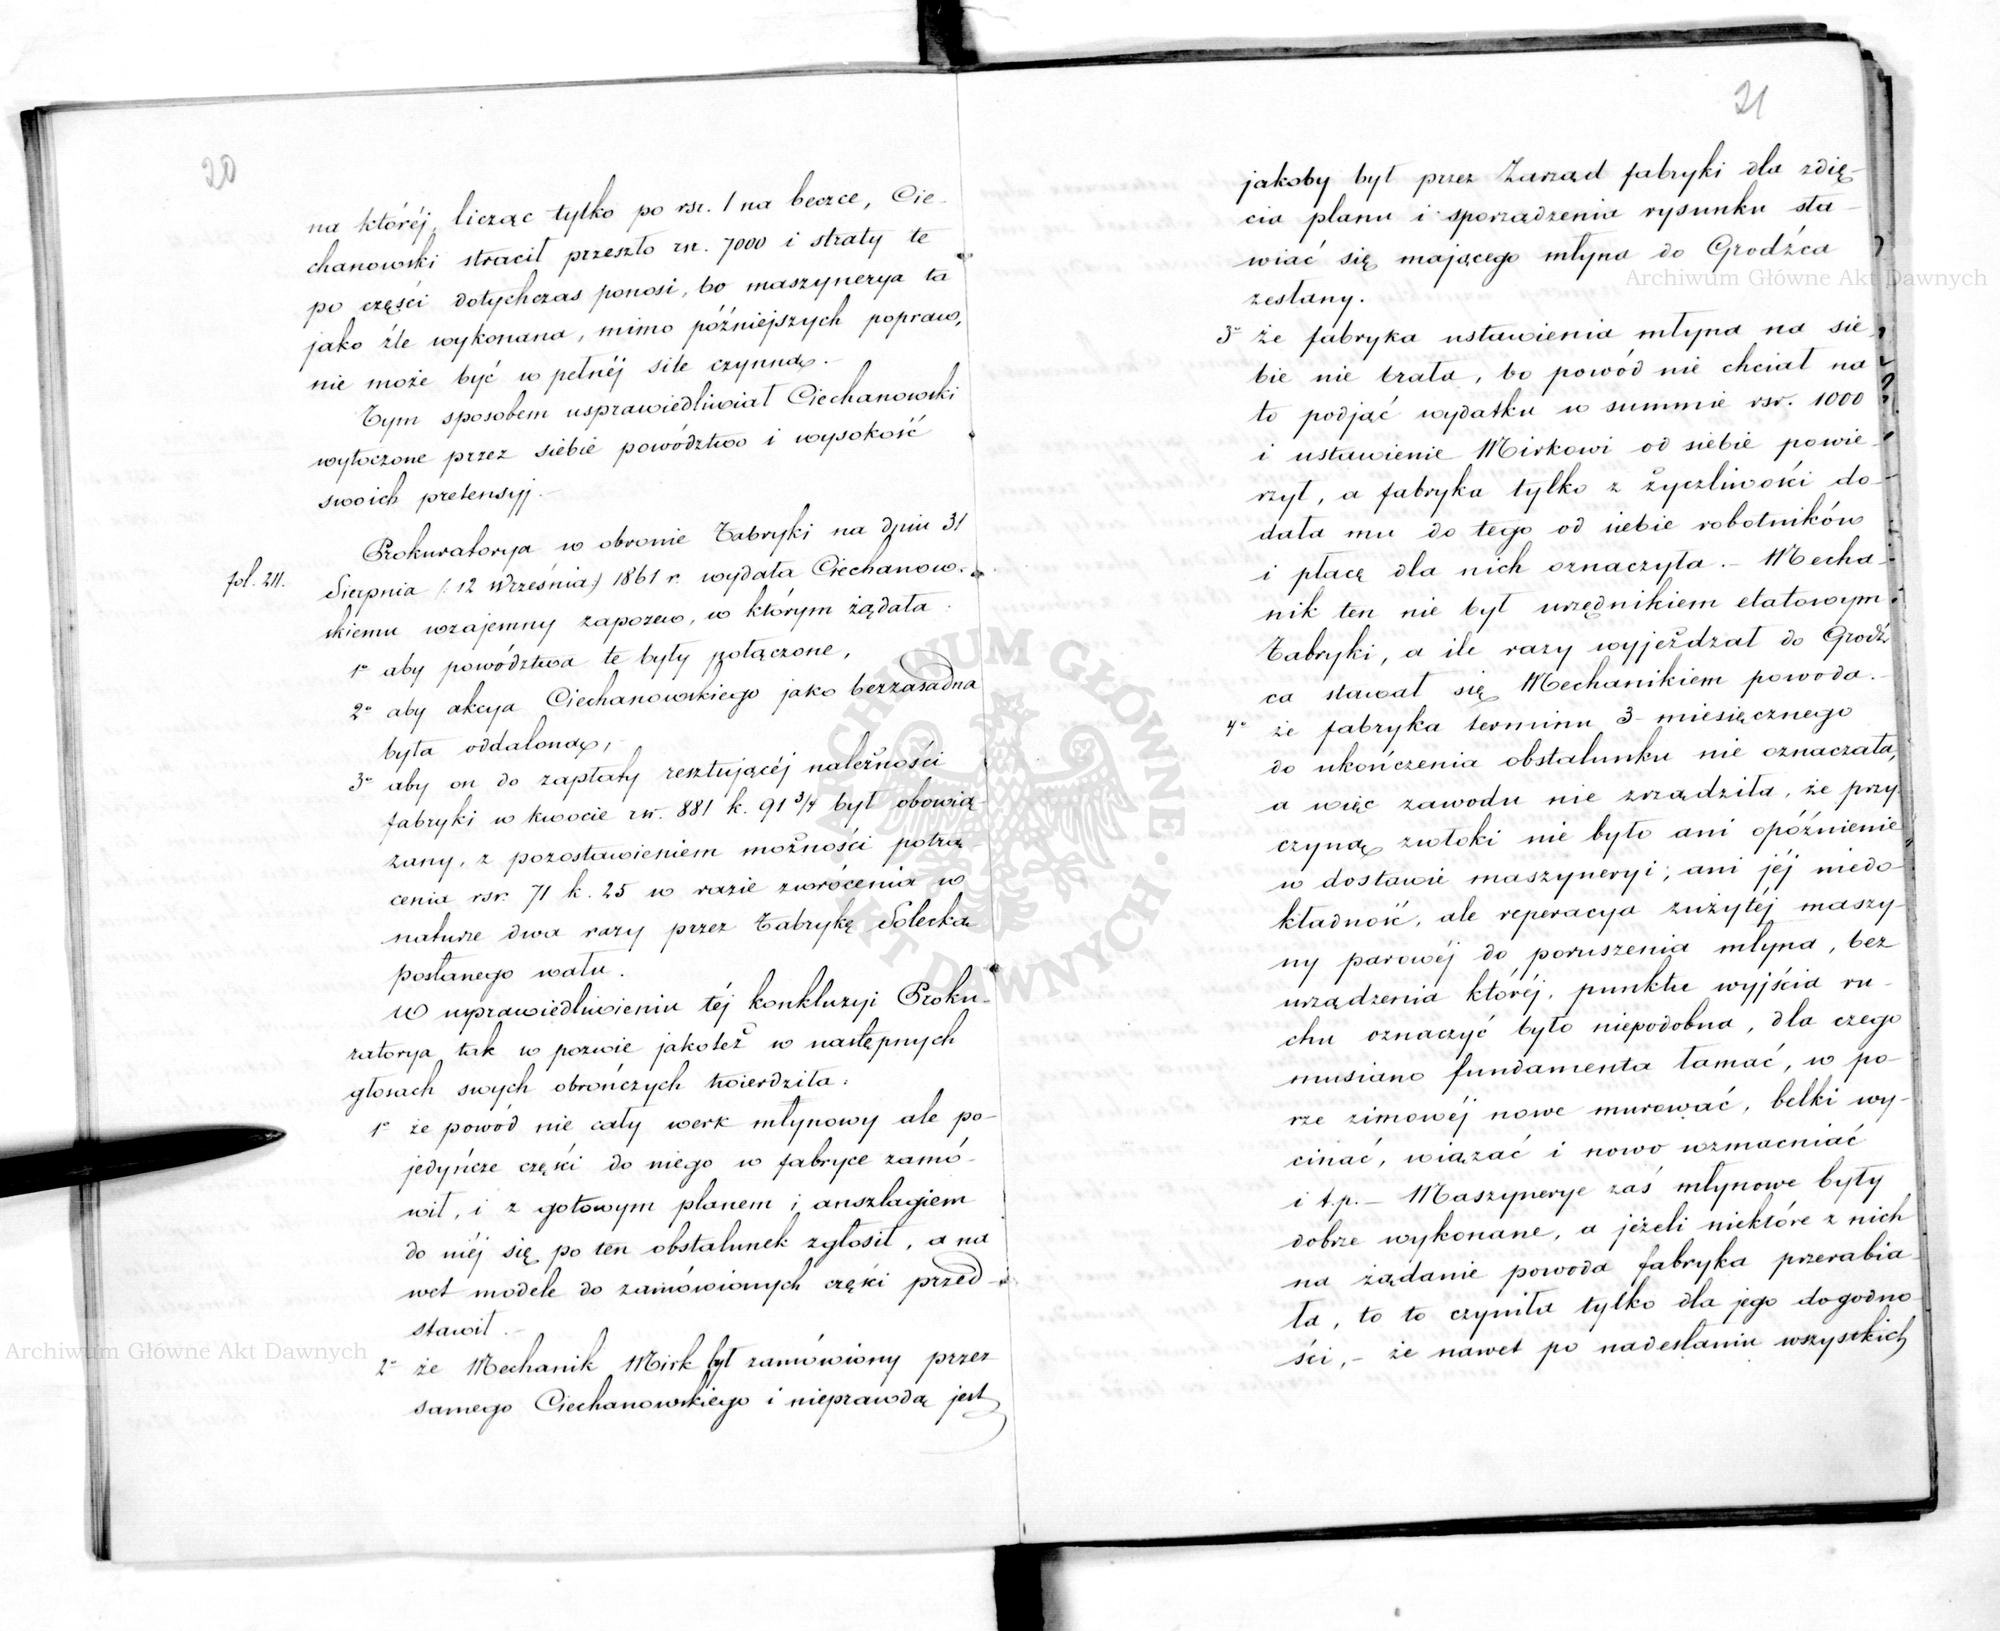 20
na któréj, licząc tylko po rsr. 1 na beczce, Cie-
chanowski stracił przeszło rsr. 7000 i straty te
po części dotychczas ponosi, bo maszynerya ta
jako źle wykonana, mimo późniejszych popraw,
nie może być w pełnéj sile czynną.-
Tym sposobem usprawiedliwiał Ciechanowski
wytoczone przez siebie powództwo i wysokość
swoich pretensyj.-
Prokuratorya w obronie Fabryki na dniu 31
fol. 211.
Sierpnia (: 12 Września :) 1861 r. wydała Ciechanow-
skiemu wzajemny zapozew, w którym żądała:
1o aby powództwa te były połączone,
2o aby akcya Ciechanowskiego jako bezzasadna
była oddaloną,-
3o aby on do zapłaty resztującéj należności
fabryki w kwocie rsr. 881 k. 91 3/4 był obowią-
zany, z pozostawieniem możności potrą-
cenia rsr. 71 k. 25 w razie zwrócenia w
naturze dwa razy przez Fabrykę Solecką
posłanego wału.
W usprawiedliwieniu téj konkluzyi Proku-
ratorya tak w pozwie jakoteż w następnych
głosach swych obrończych twierdziła:
1o że powód nie cały werk młynowy ale po-
jedyńcze części do niego w fabryce zamó-
wił, i z gotowym planem i anszlagiem
do niéj się po ten obstalunek zgłosił, a na
wet modele do zamówionych części przed-
stawił.-
2o że Mechanik Mirk był zamówiony przez
samego Ciechanowskiego i nieprawdą jest
21
jakoby był przez Zarząd fabryki dla zdię-
cia planu i sporządzenia rysunku sta-
wiać się mającego młyna do Grodźca
zesłany.
3o że fabryka ustawienia młyna na sie
bie nie brała, bo powód nie chciał na
to podjąć wydatku w summie rsr. 1000
i ustawienie Mirkowi od siebie powie-
rzył, a fabryka tylko z życzliwości do-
dała mu do tego od siebie robotników
i płacę dla nich oznaczyła.- Mecha-
nik ten nie był urzędnikiem etatowym
Fabryki, a ile razy wyjeżdzał do Grodź
ca stawał się Mechanikiem powoda.-
4o że fabryka terminu 3-miesięcznego
do ukończenia obstalunku nie oznaczała,
a więc zawodu nie zrządziła, że przy
czyną zwłoki nie było ani opóźnienie
w dostawie maszyneryi, ani jéj niedo-
kładność, ale reperacya zużytéj maszy-
ny parowéj do poruszenia młyna, bez
urządzenia któréj, punktu wyjścia ru-
chu oznaczyć było niepodobna, dla czego
musiano fundamenta łamać, w po-
rze zimowéj nowe murować, belki wy-
cinać, wiązać i nowo wzmacniać
i t.p.- Maszynerye zaś młynowe były
dobrze wykonane, a jeżeli niektóre z nich
na żądanie powoda fabryka przerabia-
ła, to to czyniła tylko dla jego dogodno-
ści,- że nawet po nadesłaniu wszystkich
Archiwum Główne Akt Dawnych
Archiwum Główne Akt Dawnych
ARCHIWUM GŁÓWNE · AKT DAWNYCH ·